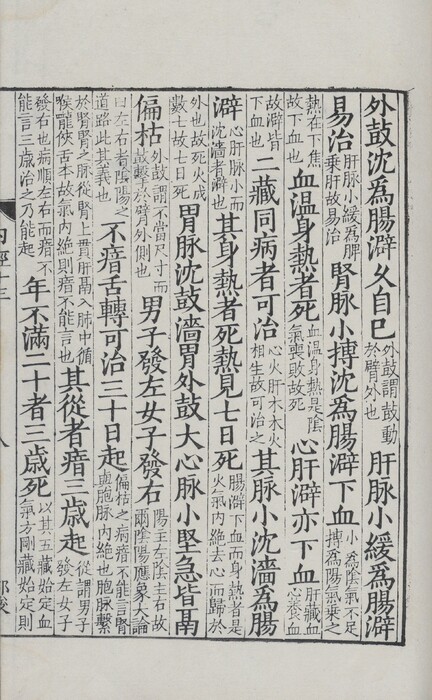 外鼓沈爲腸澼久自已外鼓謂鼓動於臂外也肝脉小緩爲腸澼
易治肝脉小緩爲脾乘肝故易治腎脉小搏沈爲腸澼下血小爲陰氣不足搏爲陽氣乘之
熱在下焦故下血也血温身熱者死血温身熱是陰氣喪敗故死心肝澼亦下血肝藏血心養血
故澼皆下血也二藏同病者可治心火肝木木火相生故可治之其脉小沈濇爲腸
澼心肝脉小而沈濇者澼也其身熱者死熱見七日死腸澼下血而身熱者是火氣内絶去心而歸於
外也故死火成數七故七日死胃脉沈鼓濇胃外鼓大心脉小堅急皆鬲
偏枯外鼓謂不當尺寸而鼓擊於臂外側也男子發左女子發右陽主左陰主右故爾陰陽應象大論
曰左右者陰陽之道路此其義也不瘖舌轉可治三十日起偏枯之病瘖不能言腎與胞脉内絶也胞脉繫
於腎腎之脉從腎上貫肝鬲入肺中循喉嚨俠舌本故氣内絶則瘖不能言也其從者瘖三歳起從謂男子發左女子
發右也病順左右而瘖不能言三歳治之乃能起年不滿二十者三歳死以其五藏始定血氣方剛藏始定則
内經十三